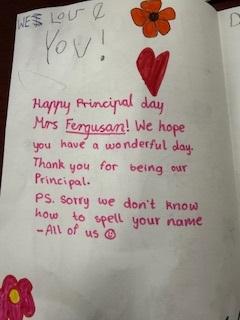 WE LOVE
YOU!
Happy Principal day
Mrs Fergusan! We hope
you have a wonderful day.
Thank you for being our
Principal.
PS. sorry we don't know
how to spell your name
-All of us ☺